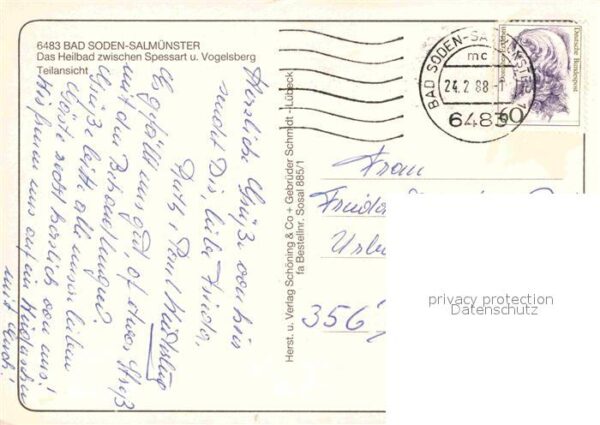 6483 BAD SODEN-SALMÜNSTER
Das Heilbad zwischen Spessart u. Vogelsberg
Teilansicht
Herzliche Grüße von hier
sucht Dir, liebe Frieda,
Ruth u. Paul
Es gefällt uns gut, of etwas Streß
mit den Behandlungen!
Grüße bitte alle unsere lieben
Gäste recht herzlich von uns!
Wir freuen uns auf ein Wiedersehen
mit Euch!
Herst. u. Verlag Schöning & Co + Gebrüder Schmidt - Lübeck
fa Bestellnr. Sosal 885/1
BAD SODEN-SALMÜNSTER 1
mc
24.2.88-1
6483
60
Deutsche Bundespost
Frau
Frieda
356
privacy protection
Datenschutz